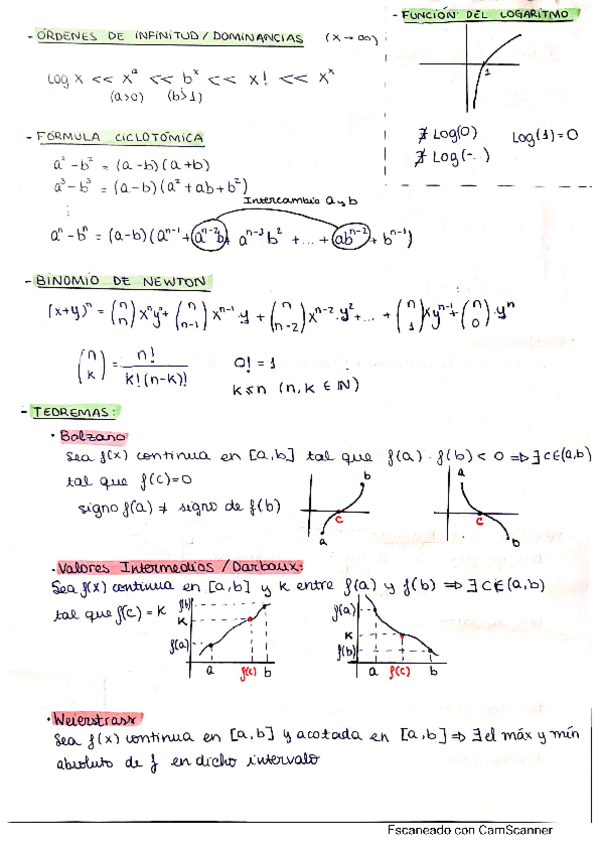 - ÓRDENES DE INFINITUD / DOMINANCIAS (x → ∞)
Log x << xᵃ << bˣ << x! << xˣ
(a>0) (b>1)
- FUNCIÓN DEL LOGARITMO
1
∄ Log(0) Log(1)=0
∄ Log(-..)
- FÓRMULA CICLOTÓMICA
a² - b² = (a-b)(a+b)
a³ - b³ = (a-b)(a² + ab + b²)
⋮
Intercambio a y b
aⁿ - bⁿ = (a-b)(aⁿ⁻¹ + aⁿ⁻²b + aⁿ⁻³b² + ... + abⁿ⁻² + bⁿ⁻¹)
- BINOMIO DE NEWTON
(x+y)ⁿ = (n n) xⁿy⁰ + (n n-1) xⁿ⁻¹·y + (n n-2) xⁿ⁻²·y² + ... + (n 1) xyⁿ⁻¹ + (n 0)·yⁿ
(n k) = n! / k!(n-k)! 0! = 1
k ≤ n (n, k ∈ ℕ)
- TEOREMAS:
· Bolzano
Sea f(x) continua en [a,b] tal que f(a)·f(b) < 0 ⇒ ∃ c∈(a,b)
tal que f(c)=0
signo f(a) ≠ signo de f(b)
a c b
a c b
· Valores Intermedios / Darboux:
Sea f(x) continua en [a,b] y k entre f(a) y f(b) ⇒ ∃ c∈(a,b)
tal que f(c) = k
f(b) k f(a) a f(c) b
f(a) k f(b) a f(c) b
· Weierstrass
Sea f(x) continua en [a,b] y acotada en [a,b] ⇒ ∃ el máx y mín
absoluto de f en dicho intervalo
Escaneado con CamScanner